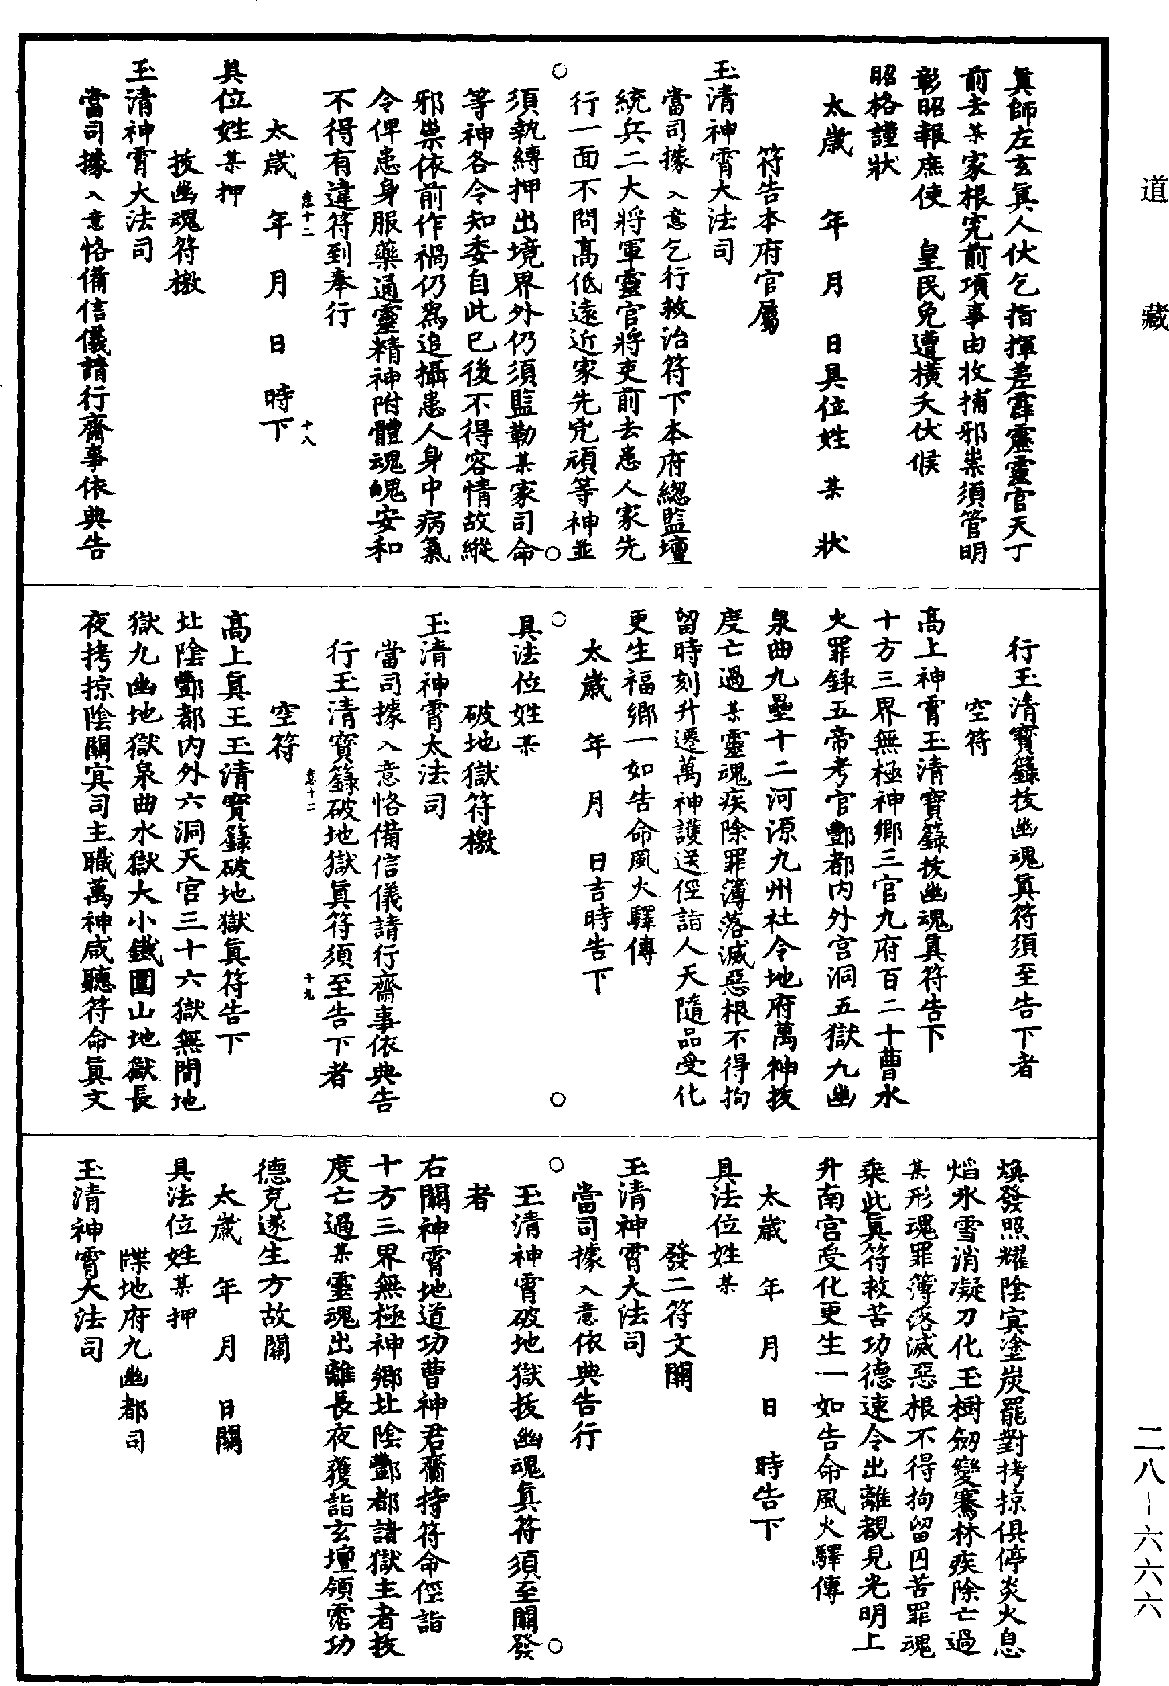 道藏
真師左玄真人伏乞指揮差霹靂靈官天丁
前去某家根究前項事由收捕邪祟須管明
彰昭報庶使　皇民免遭橫夭伏候
昭格謹狀
太歲　年　月　日具位姓　某　狀
符告本府官屬
玉清神霄大法司
當司據入意乞行救治符下本府總監壇
統兵二大將軍靈官將吏前去患人家先
行一面不問高低遠近家先兇頑等神並
須執縛押出境界外仍須監勒某家司命
等神各令知委自此已後不得容情故縱
邪祟依前作禍仍為追攝患人身中病氣
令俾患身服藥通靈精神附體魂魄安和
不得有違符到奉行
太歲　年　月　日　時下
具位姓某押
拔幽魂符檄
玉清神霄大法司
當司據入意恪備信儀請行齋事依典告
行玉清寶籙拔幽魂真符須至告下者
空符
高上神霄玉清寶籙拔幽魂真符告下
十方三界無極神鄉三官九府百二十曹水
火罪錄五帝考官酆都內外宮洞五獄九幽
泉曲九壘十二河源九州社令地府萬神拔
度亡過某靈魂疾除罪簿落滅惡根不得拘
留時刻升遷萬神護送徑詣人天隨品受化
更生福鄉一如告命風火驛傳
太歲　年　月　日吉時告下
具法位姓某
破地獄符檄
玉清神霄大法司
當司據入意恪備信儀請行齋事依典告
行玉清寶籙破地獄真符須至告下者
空符
高上真王玉清寶籙破地獄真符告下
北陰酆都內外六洞天宮三十六獄無間地
獄九幽地獄泉曲水獄大小鐵圍山地獄長
夜拷掠陰關冥司主職萬神咸聽符命真文
煥發照耀陰冥塗炭罷對拷掠俱停炎火息
焰氷雪消凝刀化玉樹劒變騫林疾除亡過
某形魂罪簿落滅惡根不得拘留囚苦罪魂
乘此真符救苦功德速令出離覩見光明上
升南宮受化更生一如告命風火驛傳
太歲　年　月　日　時告下
具法位姓某
發二符文關
玉清神霄大法司
當司據入意依典告行
玉清神霄破地獄拔幽魂真符須至關發
者
右關神霄地道功曹神君齎持符命徑詣
十方三界無極神鄉北陰酆都諸獄主者拔
度亡過某靈魂出離長夜獲詣玄壇領霑功
德克遂生方故關
太歲　年　月　日關
具法位姓某押
牒地府九幽都司
玉清神霄大法司
十八
十九
二八-六六六